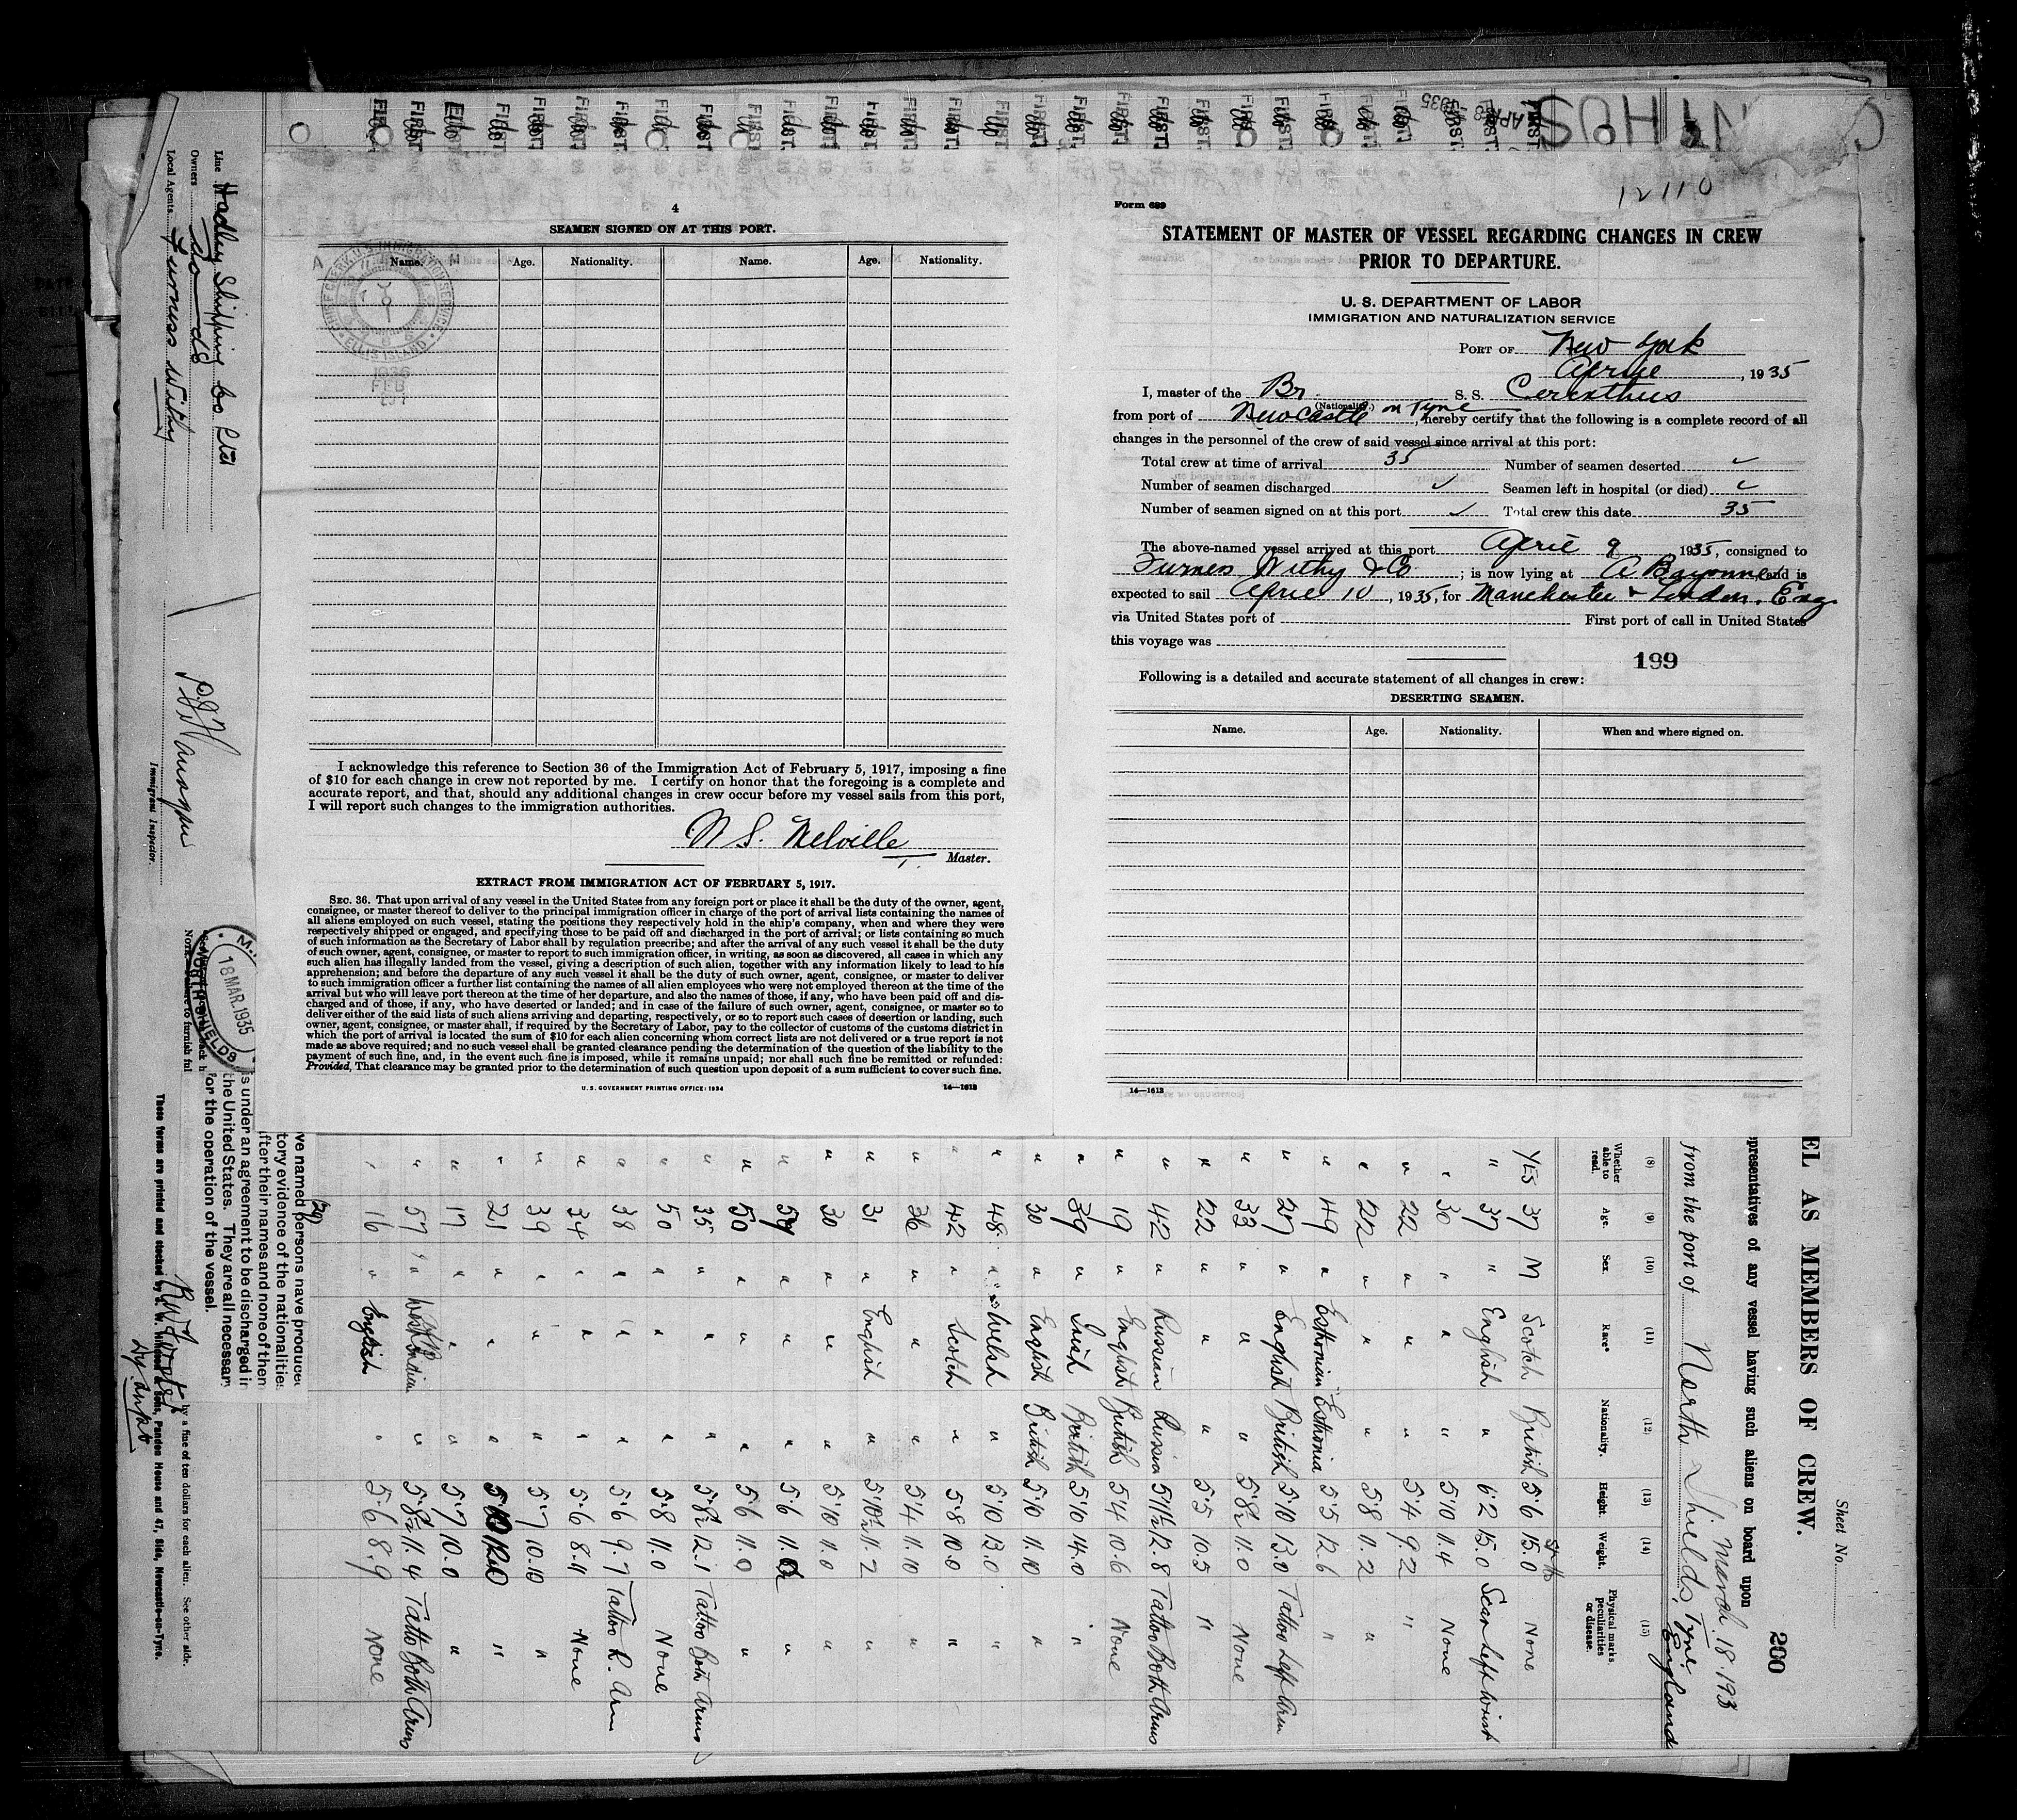 4
SEAMEN SIGNED ON AT THIS PORT.
Name. Age. Nationality. Name. Age. Nationality.
CHIEF CLERK, U.S. IMMIGRATION SERVICE
ELLIS ISLAND
FEB
I acknowledge this reference to Section 36 of the Immigration Act of February 5, 1917, imposing a fine
of $10 for each change in crew not reported by me. I certify on honor that the foregoing is a complete and
accurate report, and that, should any additional changes in crew occur before my vessel sails from this port,
I will report such changes to the immigration authorities.
N S. Melville
Master.
EXTRACT FROM IMMIGRATION ACT OF FEBRUARY 5, 1917.
SEC. 36. That upon arrival of any vessel in the United States from any foreign port or place it shall be the duty of the owner, agent,
consignee, or master thereof to deliver to the principal immigration officer in charge of the port of arrival lists containing the names of
all aliens employed on such vessel, stating the positions they respectively hold in the ship's company, when and where they were
respectively shipped or engaged, and specifying those to be paid off and discharged in the port of arrival; or lists containing so much
of such information as the Secretary of Labor shall by regulation prescribe; and after the arrival of any such vessel it shall be the duty
of such owner, agent, consignee, or master to report to such immigration officer, in writing, as soon as discovered, all cases in which any
such alien has illegally landed from the vessel, giving a description of such alien, together with any information likely to lead to his
apprehension; and before the departure of any such vessel it shall be the duty of such owner, agent, consignee, or master to deliver
to such immigration officer a further list containing the names of all alien employees who were not employed thereon at the time of the
arrival but who will leave port thereon at the time of her departure, and also the names of those, if any, who have been paid off and dis-
charged and of those, if any, who have deserted or landed; and in case of the failure of such owner, agent, consignee, or master so to
deliver either of the said lists of such aliens arriving and departing, respectively, or so to report such cases of desertion or landing, such
owner, agent, consignee, or master shall, if required by the Secretary of Labor, pay to the collector of customs of the customs district in
which the port of arrival is located the sum of $10 for each alien concerning whom correct lists are not delivered or a true report is not
made as above required; and no such vessel shall be granted clearance pending the determination of the question of the liability to the
payment of such fine, and, in the event such fine is imposed, while it remains unpaid; nor shall such fine be remitted or refunded:
Provided, That clearance may be granted prior to the determination of such question upon deposit of a sum sufficient to cover such fine.
U. S. GOVERNMENT PRINTING OFFICE: 1934 14—1613
12110
Form 689
STATEMENT OF MASTER OF VESSEL REGARDING CHANGES IN CREW
PRIOR TO DEPARTURE.
U. S. DEPARTMENT OF LABOR
IMMIGRATION AND NATURALIZATION SERVICE
PORT OF New York
April , 1935
I, master of the Br S. S. Cerinthus
(Nationality.)
from port of Newcastle on Tyne, hereby certify that the following is a complete record of all
changes in the personnel of the crew of said vessel since arrival at this port:
Total crew at time of arrival 35 Number of seamen deserted ✓
Number of seamen discharged ✓ Seamen left in hospital (or died) ✓
Number of seamen signed on at this port ✓ Total crew this date 35
The above-named vessel arrived at this port April 9 1935, consigned to
Furness Withy & Co ; is now lying at Bayonne and is
expected to sail April 10, 1935, for Manchester & London. Eng.
via United States port of First port of call in United States
this voyage was
199
Following is a detailed and accurate statement of all changes in crew:
DESERTING SEAMEN.
Name. Age. Nationality. When and where signed on.
14—1613
Line Hadley Shipping Co Ltd
Owners do
Local Agents Furness Withy
Immigrant Inspector.
18 MAR. 1935
NORTH SHIELDS
ve named persons have produced
tory evidence of the nationalities
fter their names and none of them
s under an agreement to be discharged in
the United States. They are all necessary
for the operation of the vessel.
by a fine of ten dollars for each alien. See other side.
These forms are printed and stocked by Sons, Pandon House and 47, Side, Newcastle-on-Tyne.
Sheet No.
200
EL AS MEMBERS OF CREW.
epresentatives of any vessel having such aliens on board upon
March 18 193
from the port of North Shields, Tyne England
(8) (9) (10) (11) (12) (13) (14) (15)
Whether able to read. Age. Sex. Race* Nationality. Height. Weight. Physical marks, peculiarities or disease.
YES 37 M Scotch British 5'6 15.0 None
" 37 " English " 6'2 15.0 Scar Left Wrist
" 30 " " " 5'10 11.4 None
" 22 " " " 5'4 9.2 "
" 22 " " " 5'8 11.2 "
" 49 " Esthonian Esthonia 5'5 12.6 "
" 27 " English British 5'10 13.0 Tattoo Left Arm
" 33 " " " 5'8½ 11.0 None
" 22 " " " 5'5 10.5 "
" 42 " Russian Russia 5'11½ 12.8 Tattoo Both Arms
" 19 " English British 5'4 10.6 None
" 39 " Irish British 5'10 14.0 "
" 30 " English British 5'10 11.10 "
" 48 " Welsh " 5'10 13.0 "
" 42 " Scotch " 5'8 10.0 "
" 36 " " " 5'4 11.10 "
" 31 " English " 5'10½ 11.2 "
" 30 " " " 5'10 11.0 "
" " " " 5'6 "
" 50 " " " 5'6 11.0 "
" 35 " " " 5'8½ 12.1 Tattoo Both Arms
" 50 " " " 5'8 11.0 None
" 38 " " " 5'6 9.7 Tattoo R. Arm
" 34 " " " 5'6 8.11 None
" 39 " " " 5'7 10.10 "
" 21 " " " 5'10 "
" 17 " " " 5'7 10.0 "
" 57 " West Indian " 5'8½ 11.4 Tattoo Both Arms
" 16 " English " 5'6 8.9 None